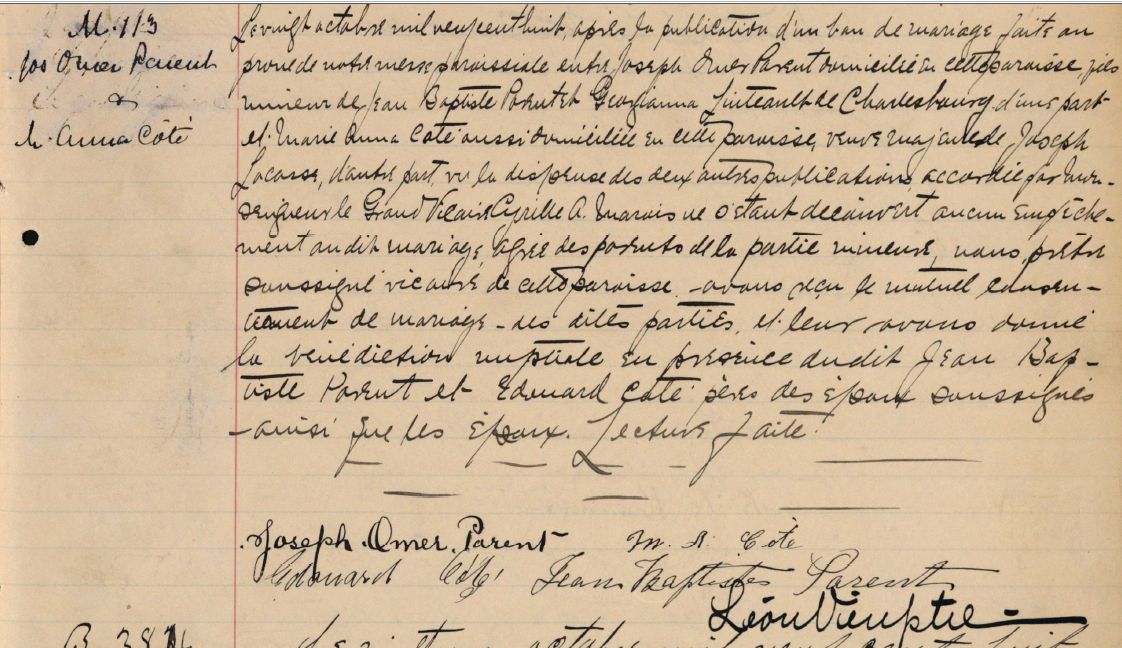 M. 113
Jos Omer Parent
&
M. Anna Côté
Le vingt octobre mil neuf cent huit, après la publication d'un ban de mariage faite au
prone de notre messe paroissiale entre Joseph Omer Parent domicilié en cette paroisse fils
mineur de Jean Baptiste Parent et Georgianna Linteault de Charlesbourg d'une part
et Marie Anna Côté aussi domiciliée en cette paroisse, veuve majeure de Joseph
Lacasse, d'autre part, vu la dispense des deux autres publications accordée par Mon-
seigneur le Grand Vicaire Cyrille A. Marois ne s'étant découvert aucun empêche-
ment au dit mariage, agrée des parents de la partie mineure, nous, prêtre
soussigné vicaire de cette paroisse avons reçu le mutuel consen-
tement de mariage des dites parties, et leur avons donné
la bénédiction nuptiale en présence du dit Jean Bap-
tiste Parent et Edouard Côté pères des époux soussignés
ainsi que les époux. Lecture faite.
Joseph Omer Parent M. A. Côté
Edouard Côté Jean Baptiste Parent
Léon Vien ptre
B. 38
octobre mil neuf cent huit